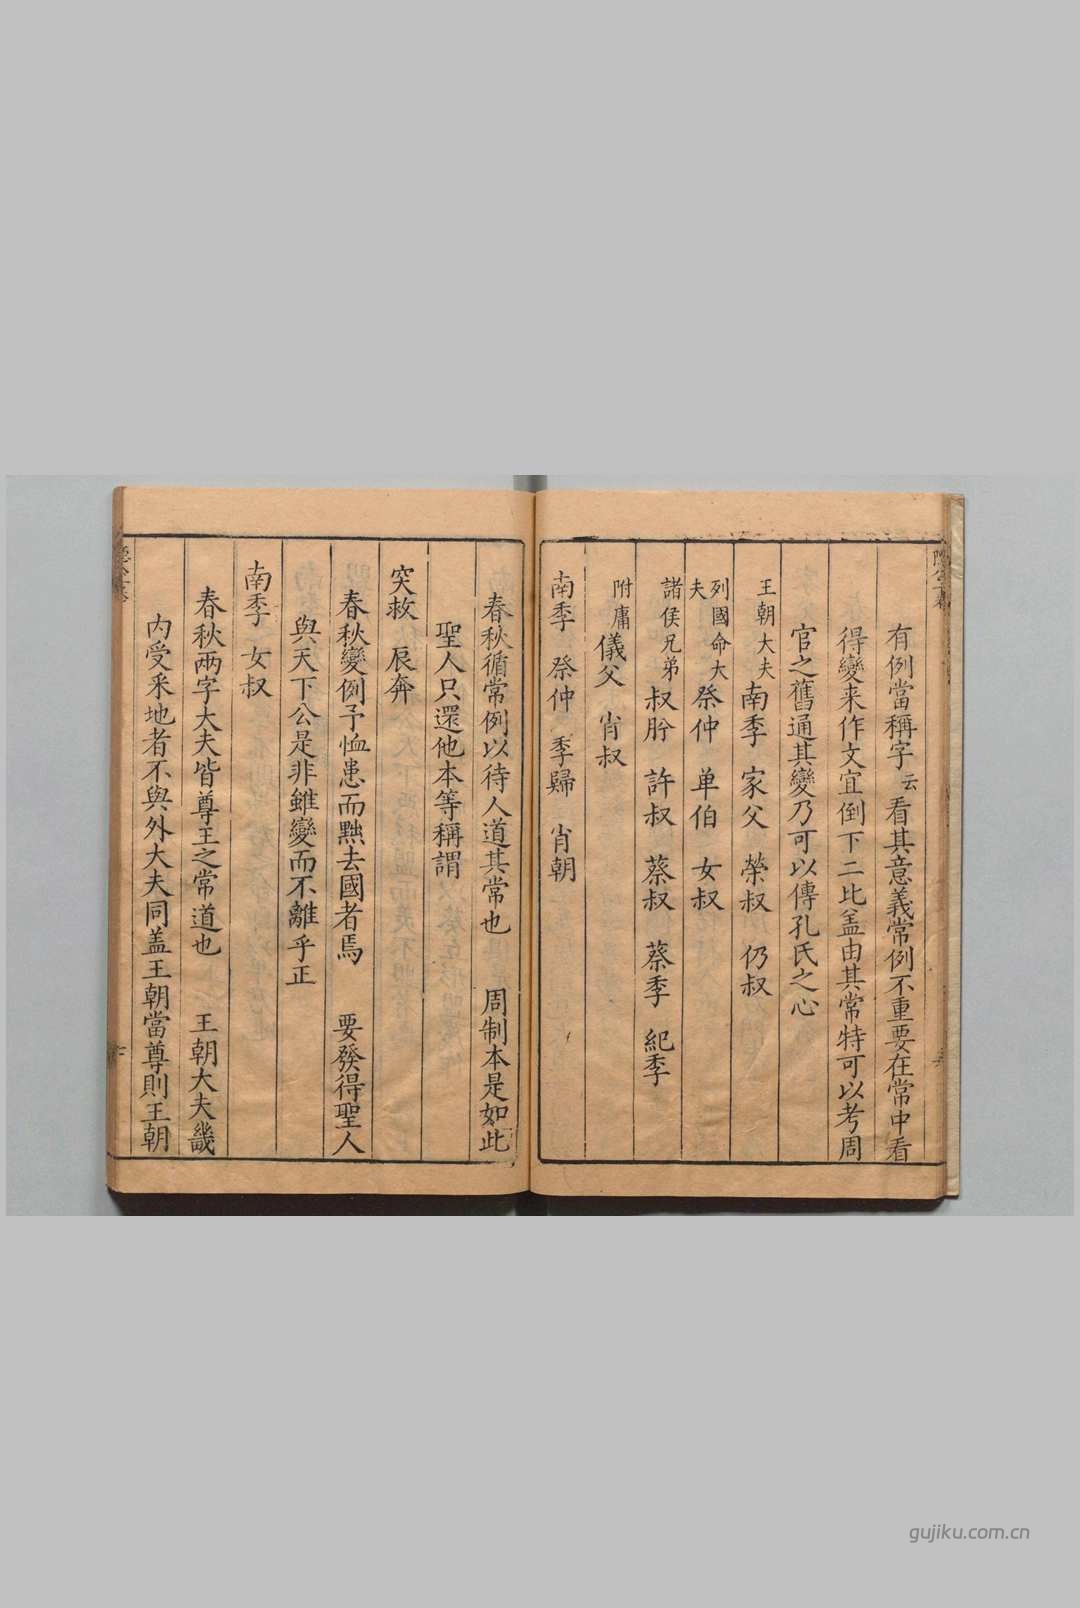 有例當稱字云看其意義常例不重要在常中看
得變来作文宜倒下二比盖由其常特可以考周
官之舊通其變乃可以傳孔氏之心
王朝大夫南季 家父 榮叔 仍叔
列國命大夫祭仲 单伯 女叔
諸侯兄弟叔肸 許叔 蔡叔 蔡季 紀季
附庸儀父 肖叔
南季 祭仲 季歸 肖朝
春秋循常例以待人道其常也 周制本是如此
聖人只還他本等稱謂
突救 辰奔
春秋變例予恤患而黜去國者焉 要發得聖人
與天下公是非雖變而不離乎正
南季 女叔
春秋兩字大夫皆尊王之常道也 王朝大夫畿
内受采地者不與外大夫同盖王朝當尊則王朝
gujiku.com.cn